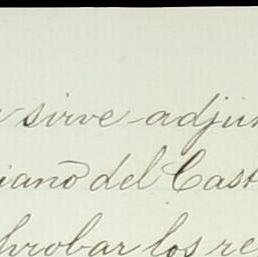 sirve adjun
iano del Cast
probar los re